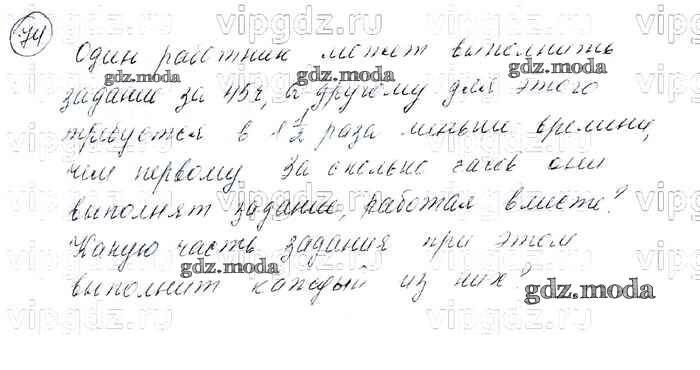 74
Один работник может выполнить
задание за 45 ч, а другому для этого
требуется в 1 1/2 раза меньше времени,
чем первому. За сколько часов они
выполнят задание, работая вместе?
Какую часть задания при этом
выполнит каждый из них?
vipgdz.ru
gdz.moda